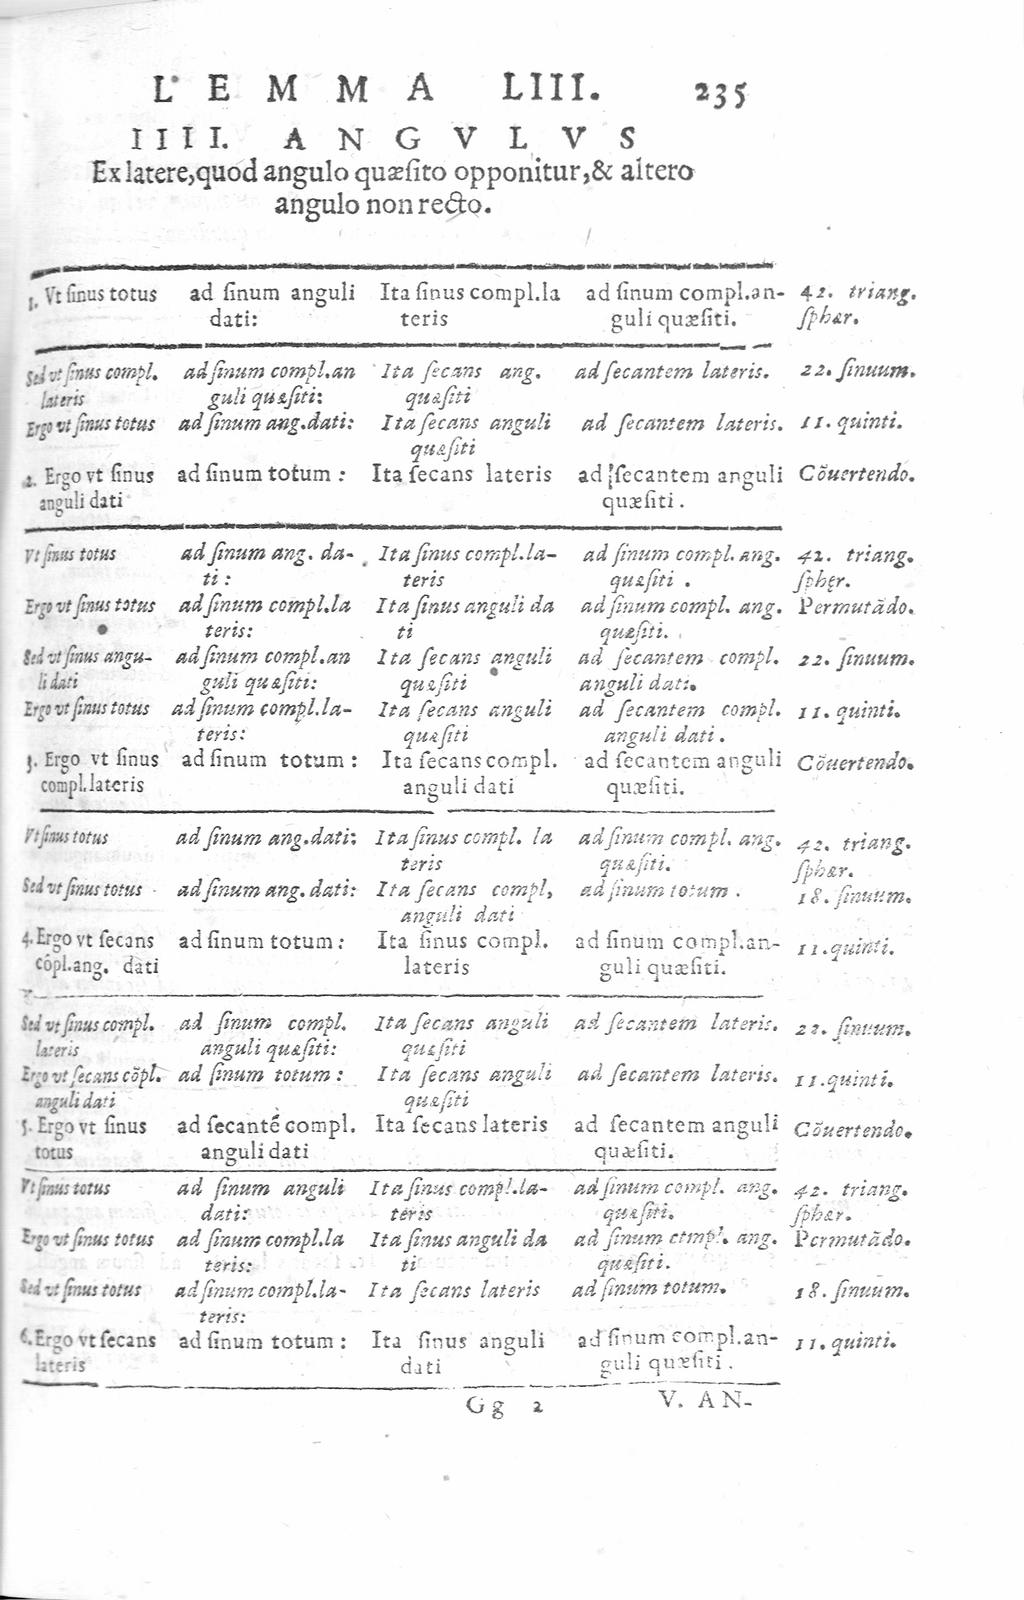 LEMMA LIII. 235
IIII. ANGVLVS
Ex latere, quod angulo quæſito opponitur, & altero
angulo non recto.
1. Vt ſinus totus ad ſinum anguli Ita ſinus compl. la ad ſinum compl. an- 42. triang.
dati: teris guli quæſiti. ſphær.
Sed vt ſinus compl. ad ſinum compl. an Ita ſecans ang. ad ſecantem lateris. 22. ſinuum.
lateris guli quæſiti: quæſiti
Ergo vt ſinus totus ad ſinum ang. dati: Ita ſecans anguli ad ſecantem lateris. 11. quinti.
quæſiti
2. Ergo vt ſinus ad ſinum totum: Ita ſecans lateris ad ſecantem anguli Cõuertendo.
anguli dati quæſiti.
Vt ſinus totus ad ſinum ang. da- Ita ſinus compl. la- ad ſinum compl. ang. 42. triang.
ti: teris quæſiti. ſphęr.
Ergo vt ſinus totus ad ſinum compl. la Ita ſinus anguli da ad ſinum compl. ang. Permutãdo.
teris: ti quæſiti.
Sed vt ſinus angu- ad ſinum compl. an Ita ſecans anguli ad ſecantem compl. 22. ſinuum.
li dati guli quæſiti: quæſiti anguli dati.
Ergo vt ſinus totus ad ſinum compl. la- Ita ſecans anguli ad ſecantem compl. 11. quinti.
teris: quæſiti anguli dati.
3. Ergo vt ſinus ad ſinum totum: Ita ſecans compl. ad ſecantem anguli Cõuertendo.
compl. lateris anguli dati quæſiti.
Vt ſinus totus ad ſinum ang. dati: Ita ſinus compl. la ad ſinum compl. ang. 42. triang.
teris quæſiti. ſphær.
Sed vt ſinus totus ad ſinum ang. dati: Ita ſecans compl, ad ſinum totum. 18. ſinuum.
anguli dati
4. Ergo vt ſecans ad ſinum totum: Ita ſinus compl. ad ſinum compl. an- 11. quinti.
cõpl. ang. dati lateris guli quæſiti.
Sed vt ſinus compl. ad ſinum compl. Ita ſecans anguli ad ſecantem lateris. 22. ſinuum.
lateris anguli quæſiti: quæſiti
Ergo vt ſecans cõpl. ad ſinum totum: Ita ſecans anguli ad ſecantem lateris. 11. quinti.
anguli dati quæſiti
5. Ergo vt ſinus ad ſecantẽ compl. Ita ſecans lateris ad ſecantem anguli Cõuertendo.
totus anguli dati quæſiti.
Vt ſinus totus ad ſinum anguli Ita ſinus compl. la- ad ſinum compl. ang. 42. triang.
dati: teris quæſiti. ſphær.
Ergo vt ſinus totus ad ſinum compl. la Ita ſinus anguli da ad ſinum ctmpl. ang. Permutãdo.
teris: ti quæſiti.
Sed vt ſinus totus ad ſinum compl. la- Ita ſecans lateris ad ſinum totum. 18. ſinuum.
teris:
6. Ergo vt ſecans ad ſinum totum: Ita ſinus anguli ad ſinum compl. an- 11. quinti.
lateris dati guli quæſiti.
Gg 2 V. AN-